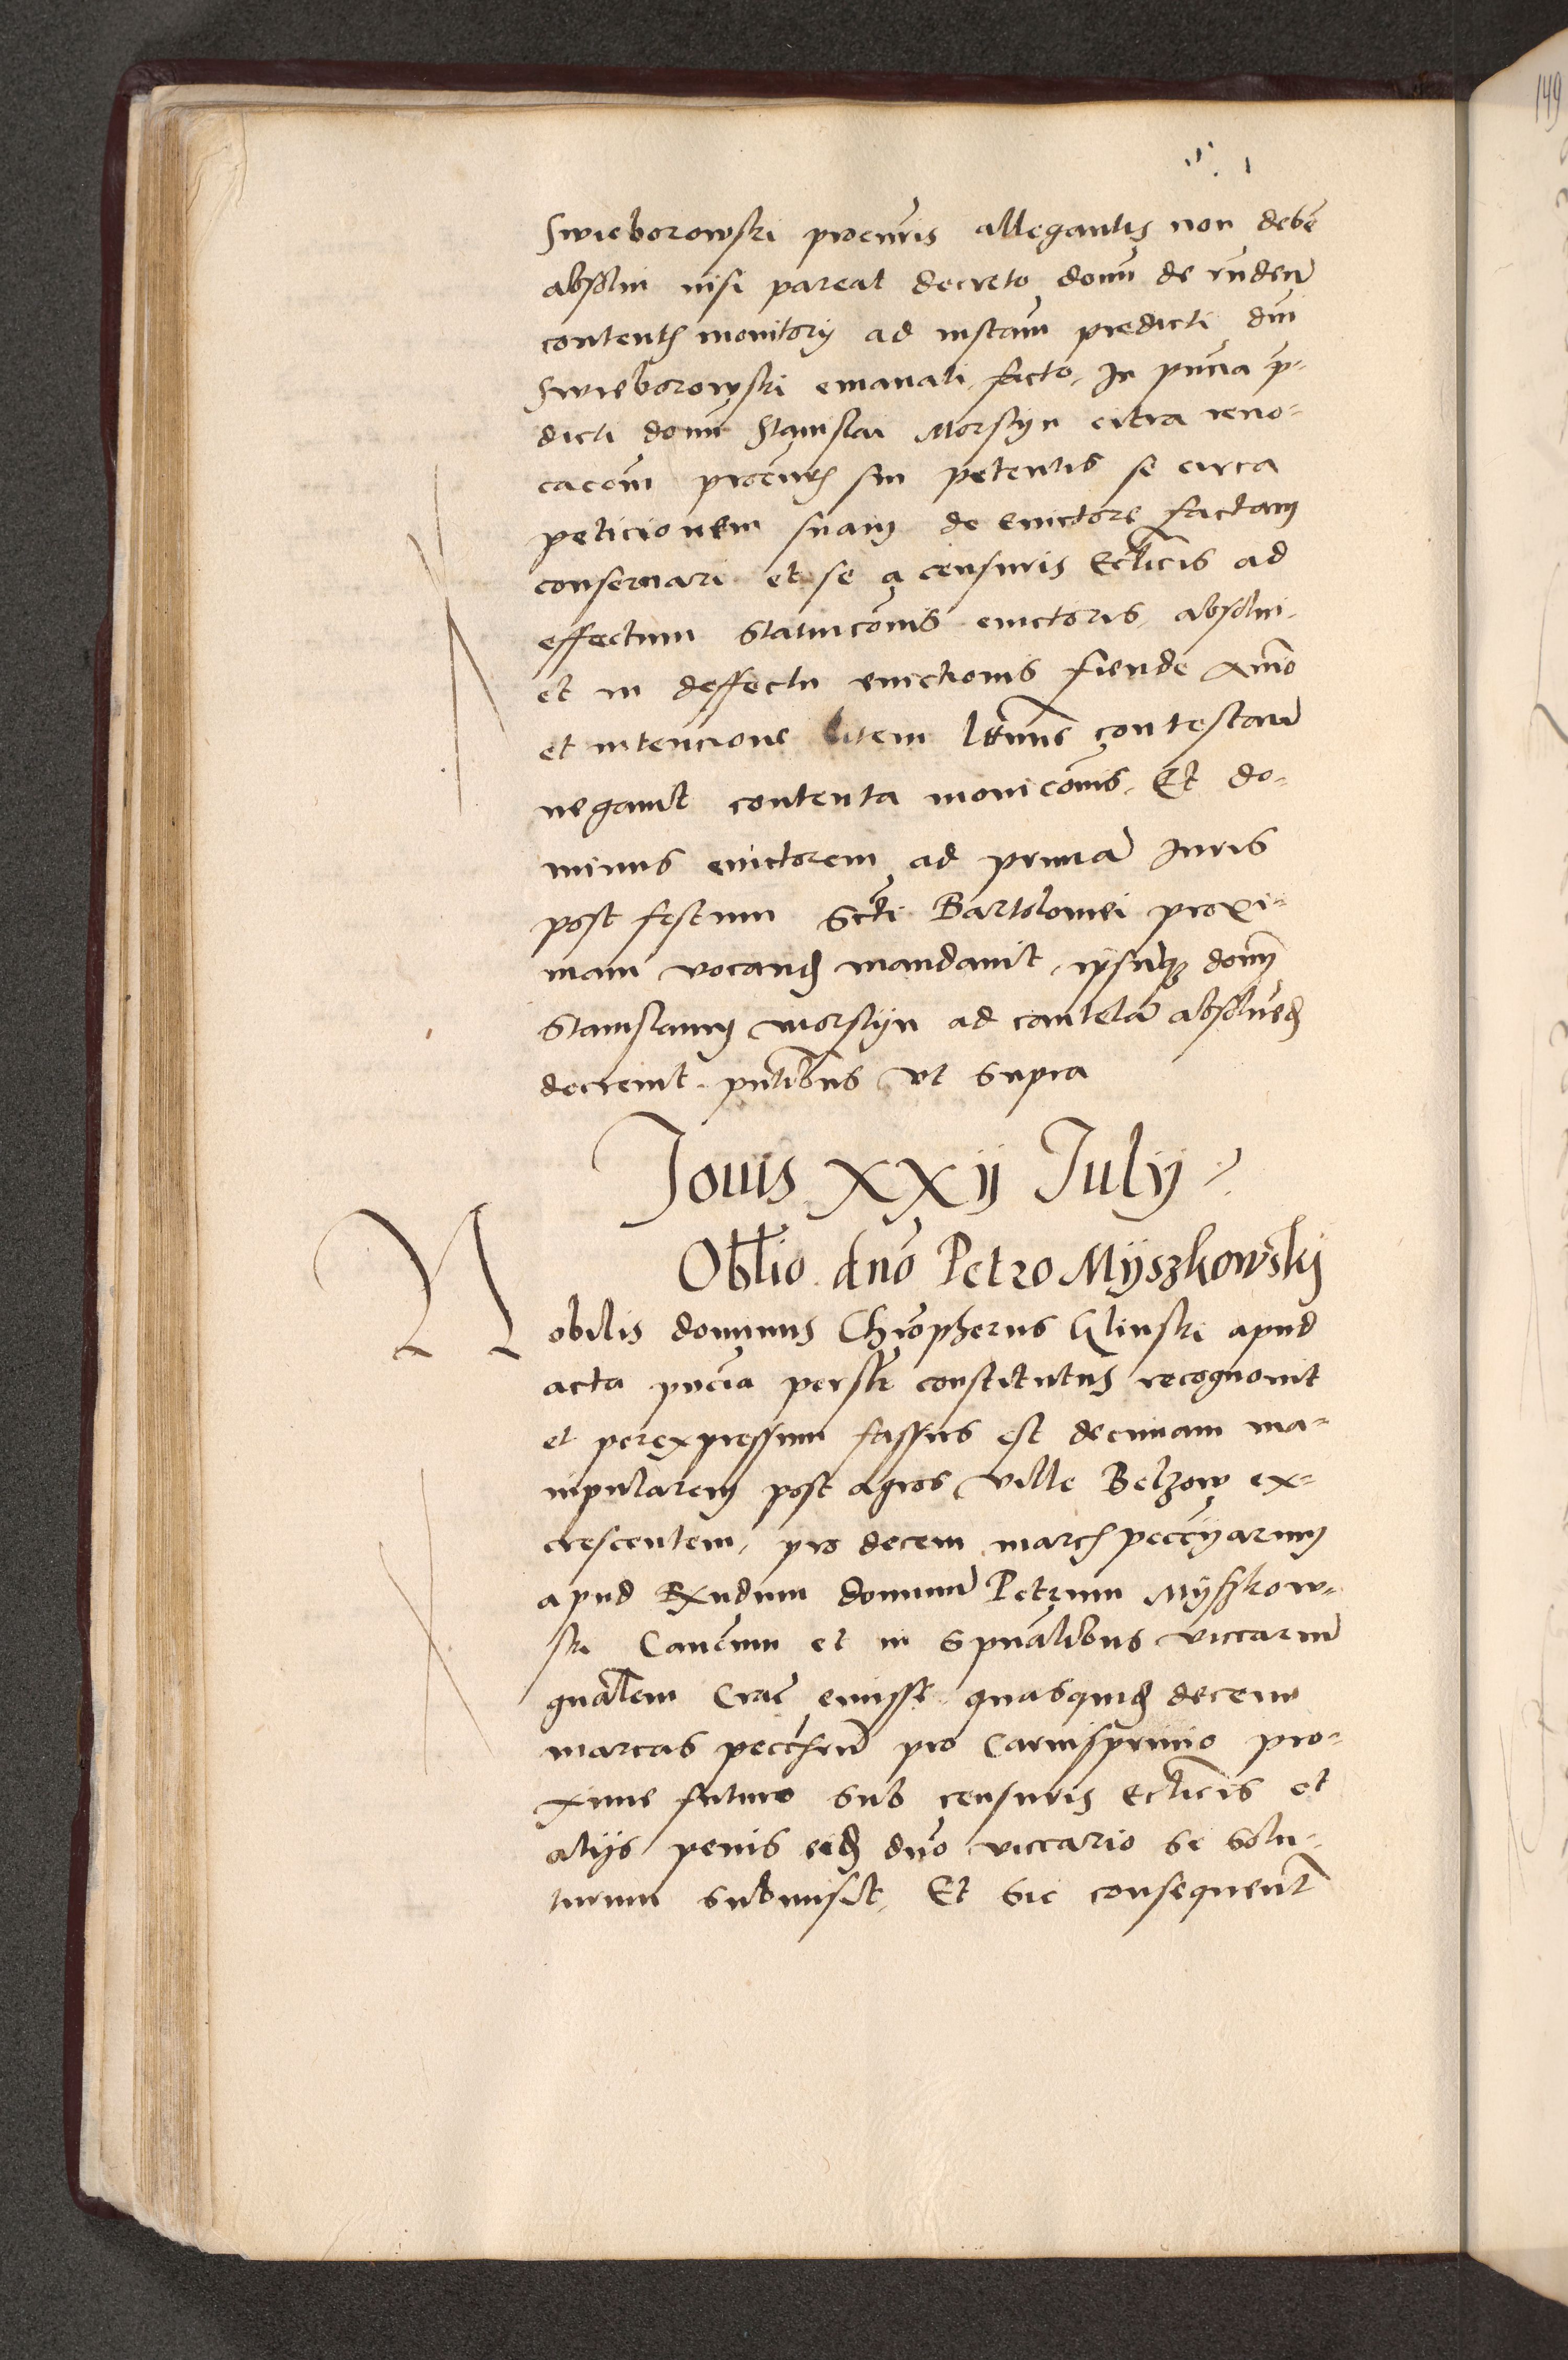 Swieborowski procuris allegantis non debe
absolui nisi pareat decreto domi de
contentis monitorij ad instam predicti dni
Swieborowski emanati facto, In pncia p-
dicti domi Stanislai Morstyn citra reuo-
cacom procuris sui petentis se circa
peticionem suam de euictore factam
conseruari et se a censuris Ecticis ad
effectum statuicois euictoris absolui
et in deffectu euictionis fiende aio
et intencione litem contestan
negauit contenta monicois. Et do-
minus euictorem ad prima Juris
post festum Scti Bartolomei proxi-
mam vocand mandauit, ipsumq dom
Stanislaum Morstyn ad cautela absoluend
decreuit. pntibus vt supra
Jouis XXij Julij
Oblio dno Petro Myszkowskj
Nobilis dominus Chroipherus Glinski apud
acta pncia persolr constitutus recognouit
et perexpressum fassus est decimam ma-
nipularem post agros ville Belzow ex-
crescentem, pro decem march peccuyarum
apud Rxndum dominum Petrum Myszkow-
ski Cancum et in spualibus viccarium
gnalem Crac emisse. quasquid decem
marcas pro Carnispriuio pro-
xime futuro sub censuris Ecticis et
alijs penis eid dno viccario se solu-
turum submisit. Et sic consequent
149